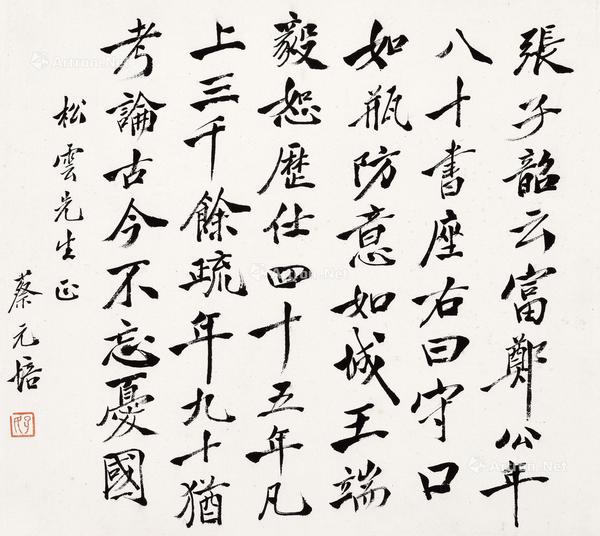 張子韶云富鄭公年
八十書座右曰守口
如瓶防意如城王端
毅恕歷仕四十五年凡
上三千餘疏年九十猶
考論古今不忘憂國
松雲先生正
蔡元培
Artron.Net
Artron.Net
Artron.Net
Artron.Net
Artron.Net